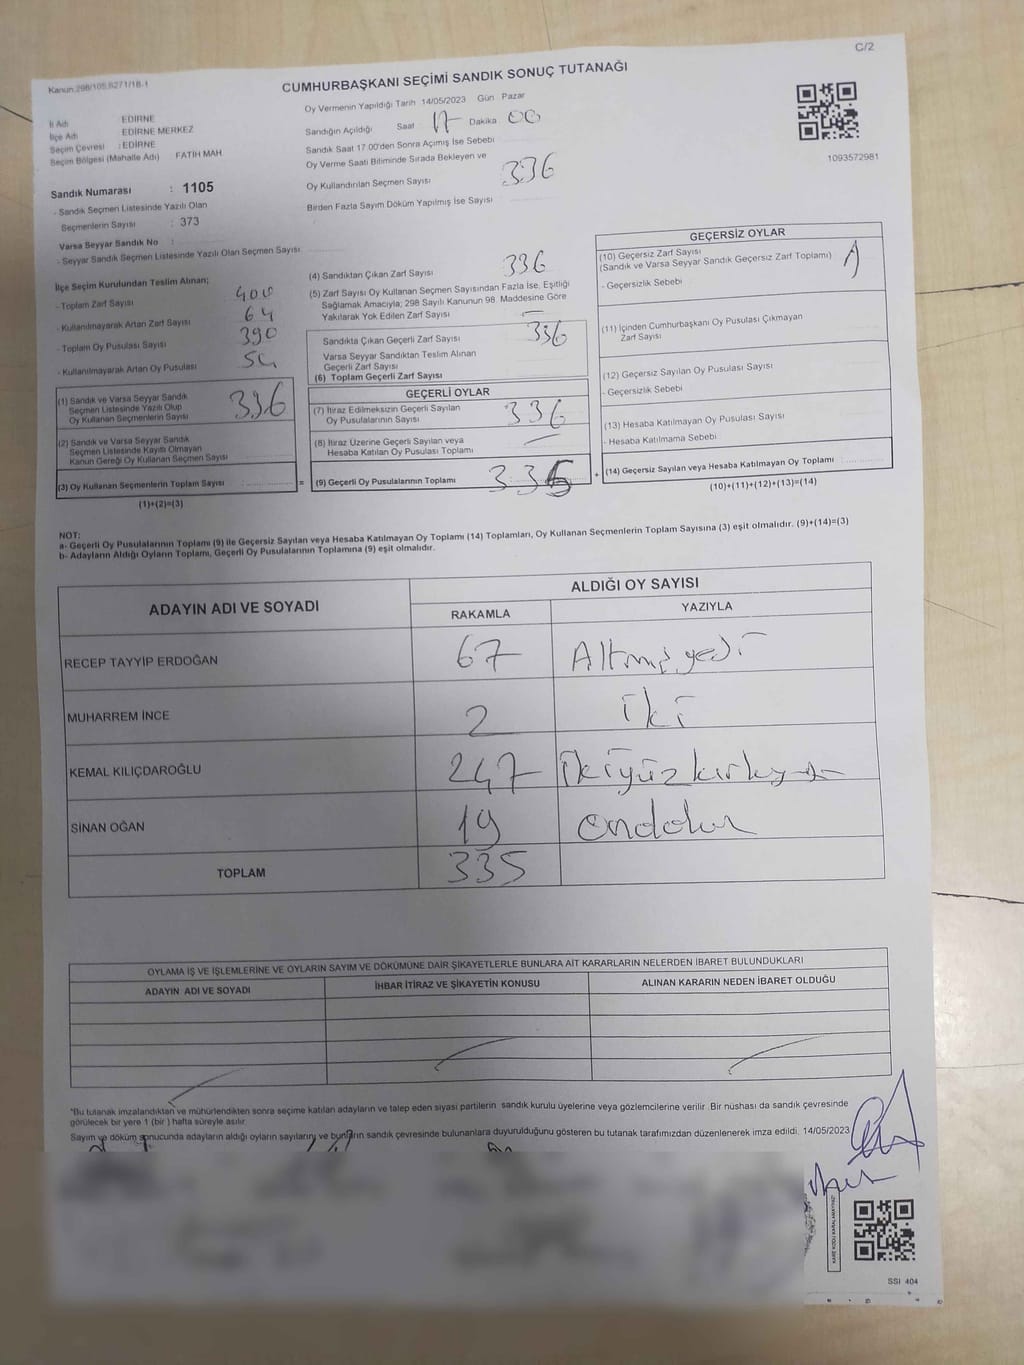 Kanun:298/105,6271/18-1
C/2
CUMHURBAŞKANI SEÇİMİ SANDIK SONUÇ TUTANAĞI
İl Adı : EDİRNE
İlçe Adı : EDİRNE MERKEZ
Seçim Çevresi : EDİRNE
Seçim Bölgesi (Mahalle Adı) FATİH MAH
Sandık Numarası : 1105
- Sandık Seçmen Listesinde Yazılı Olan
Seçmenlerin Sayısı : 373
Varsa Seyyar Sandık No :
- Seyyar Sandık Seçmen Listesinde Yazılı Olan Seçmen Sayısı
Oy Vermenin Yapıldığı Tarih 14/05/2023 Gün Pazar
Sandığın Açıldığı Saat 17 Dakika 00
Sandık Saat 17.00'den Sonra Açımış İse Sebebi
Oy Verme Saati Bitiminde Sırada Bekleyen ve
Oy Kullandırılan Seçmen Sayısı 336
Birden Fazla Sayım Döküm Yapılmış İse Sayısı
1093572981
İlçe Seçim Kurulundan Teslim Alınan;
- Toplam Zarf Sayısı 400
- Kullanılmayarak Artan Zarf Sayısı 64
- Toplam Oy Pusulası Sayısı 390
- Kullanılmayarak Artan Oy Pusulası 54
(1) Sandık ve Varsa Seyyar Sandık
Seçmen Listesinde Yazılı Olup
Oy Kullanan Seçmenlerin Sayısı 336
(2) Sandık ve Varsa Seyyar Sandık
Seçmen Listesinde Kayıtlı Olmayan
Kanun Gereği Oy Kullanan Seçmen Sayısı
(3) Oy Kullanan Seçmenlerin Toplam Sayısı :
(1)+(2)=(3)
(4) Sandıktan Çıkan Zarf Sayısı 336
(5) Zarf Sayısı Oy Kullanan Seçmen Sayısından Fazla İse, Eşitliği
Sağlamak Amacıyla; 298 Sayılı Kanunun 98. Maddesine Göre
Yakılarak Yok Edilen Zarf Sayısı —
Sandıkta Çıkan Geçerli Zarf Sayısı 336
Varsa Seyyar Sandıktan Teslim Alınan
Geçerli Zarf Sayısı
(6) Toplam Geçerli Zarf Sayısı
GEÇERLİ OYLAR
(7) İtiraz Edilmeksizin Geçerli Sayılan
Oy Pusulalarının Sayısı 336
(8) İtiraz Üzerine Geçerli Sayılan veya
Hesaba Katılan Oy Pusulası Toplamı —
= (9) Geçerli Oy Pusulalarının Toplamı 335
GEÇERSİZ OYLAR
(10) Geçersiz Zarf Sayısı
(Sandık ve Varsa Seyyar Sandık Geçersiz Zarf Toplamı)
- Geçersizlik Sebebi
(11) İçinden Cumhurbaşkanı Oy Pusulası Çıkmayan
Zarf Sayısı
(12) Geçersiz Sayılan Oy Pusulası Sayısı
- Geçersizlik Sebebi
(13) Hesaba Katılmayan Oy Pusulası Sayısı
- Hesaba Katılmama Sebebi
+ (14) Geçersiz Sayılan veya Hesaba Katılmayan Oy Toplamı :
(10)+(11)+(12)+(13)=(14)
NOT:
a- Geçerli Oy Pusulalarının Toplamı (9) ile Geçersiz Sayılan veya Hesaba Katılmayan Oy Toplamı (14) Toplamları, Oy Kullanan Seçmenlerin Toplam Sayısına (3) eşit olmalıdır. (9)+(14)=(3)
b- Adayların Aldığı Oyların Toplamı, Geçerli Oy Pusulalarının Toplamına (9) eşit olmalıdır.
ADAYIN ADI VE SOYADI ALDIĞI OY SAYISI
RAKAMLA YAZIYLA
RECEP TAYYİP ERDOĞAN 67 Altmışyedi
MUHARREM İNCE 2 iki
KEMAL KILIÇDAROĞLU 247 ikiyüzkırkyedi
SİNAN OĞAN 19 ondokuz
TOPLAM 335
OYLAMA İŞ VE İŞLEMLERİNE VE OYLARIN SAYIM VE DÖKÜMÜNE DAİR ŞİKAYETLERLE BUNLARA AİT KARARLARIN NELERDEN İBARET BULUNDUKLARI
ADAYIN ADI VE SOYADI İHBAR İTİRAZ VE ŞİKAYETİN KONUSU ALINAN KARARIN NEDEN İBARET OLDUĞU
"Bu tutanak imzalandıktan ve mühürlendikten sonra seçime katılan adayların ve talep eden siyasi partilerin sandık kurulu üyelerine veya gözlemcilerine verilir .Bir nüshası da sandık çevresinde
görülecek bir yere 1 (bir ) hafta süreyle asılır.
Sayım ve döküm sonucunda adayların aldığı oyların sayılarını ve bunların sandık çevresinde bulunanlara duyurulduğunu gösteren bu tutanak tarafımızdan düzenlenerek imza edildi. 14/05/2023
SSI 404